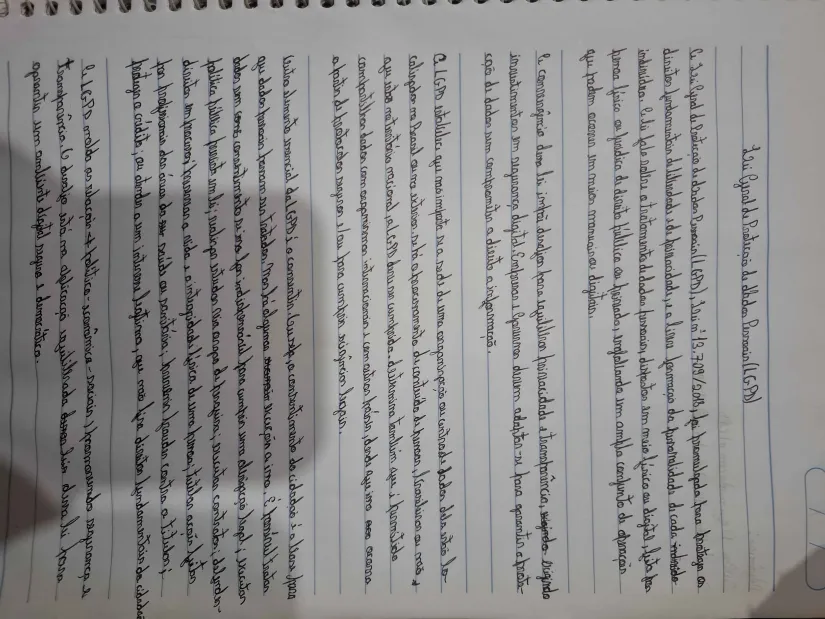 Lei Geral de Proteção de Dados Pessoais (LGPD)
A Lei Geral de Proteção de dados Pessoais (LGPD), Lei nº 13.709/2018, foi promulgada para proteger os
direitos fundamentais de liberdade e de privacidade, e a livre formação da personalidade de cada
indivíduo. A lei fala sobre o tratamento de dados pessoais, dispostos em meio físico ou digital, feito por
pessoa física ou jurídica de direito público ou privado, englobando um amplo conjunto de operações
que podem ocorrer em meios manuais ou digitais.
A convergência dessa lei impõe desafios para equilibrar privacidade e transparência, exigindo
investimentos em segurança digital. Empresas e Governos devem adaptar-se para garantir a prote-
ção de dados sem comprometer o direito a informação.
A LGPD estabelece que não importa se a sede de uma organização ou centro de dados dela estão lo-
calizados no Brasil ou no exterior: se há o processamento de conteúdo de pessoas, brasileiras ou não +
que estão no território nacional, a LGPD deve ser cumprida. determina também que é permitido
compartilhar dados com organismos internacionais e com outros países, desde que isso ocorra
a partir de protocolos seguros e/ou para cumprir exigências legais.
Outro elemento essencial da LGPD é o consentir. Ou seja, o consentimento do cidadão é a base para
que dados pessoais possam ser tratados. Mas há algumas exceções a isso. É possível tratar
dados sem consentimento se isso for indispensável para cumprir uma obrigação legal; executar
política pública prevista em lei; realizar estudos via orgão de pesquisa; executar contratos; defender
direitos em processo; preservar a vida e a integridade física de uma pessoa; tutelar ações feitas
por profissionais das áreas da saúde ou sanitária; prevenir fraudes contra o titular;
proteger o crédito; ou atender a um interesse legítimo, que não fira direitos fundamentais do cidadão
A LGPD molda as relações + político-econômico-sociais, promovendo segurança e
transparência. O desafio está na aplicação equilibrada dessa lei para
garantir um ambiente digital seguro e democrático.